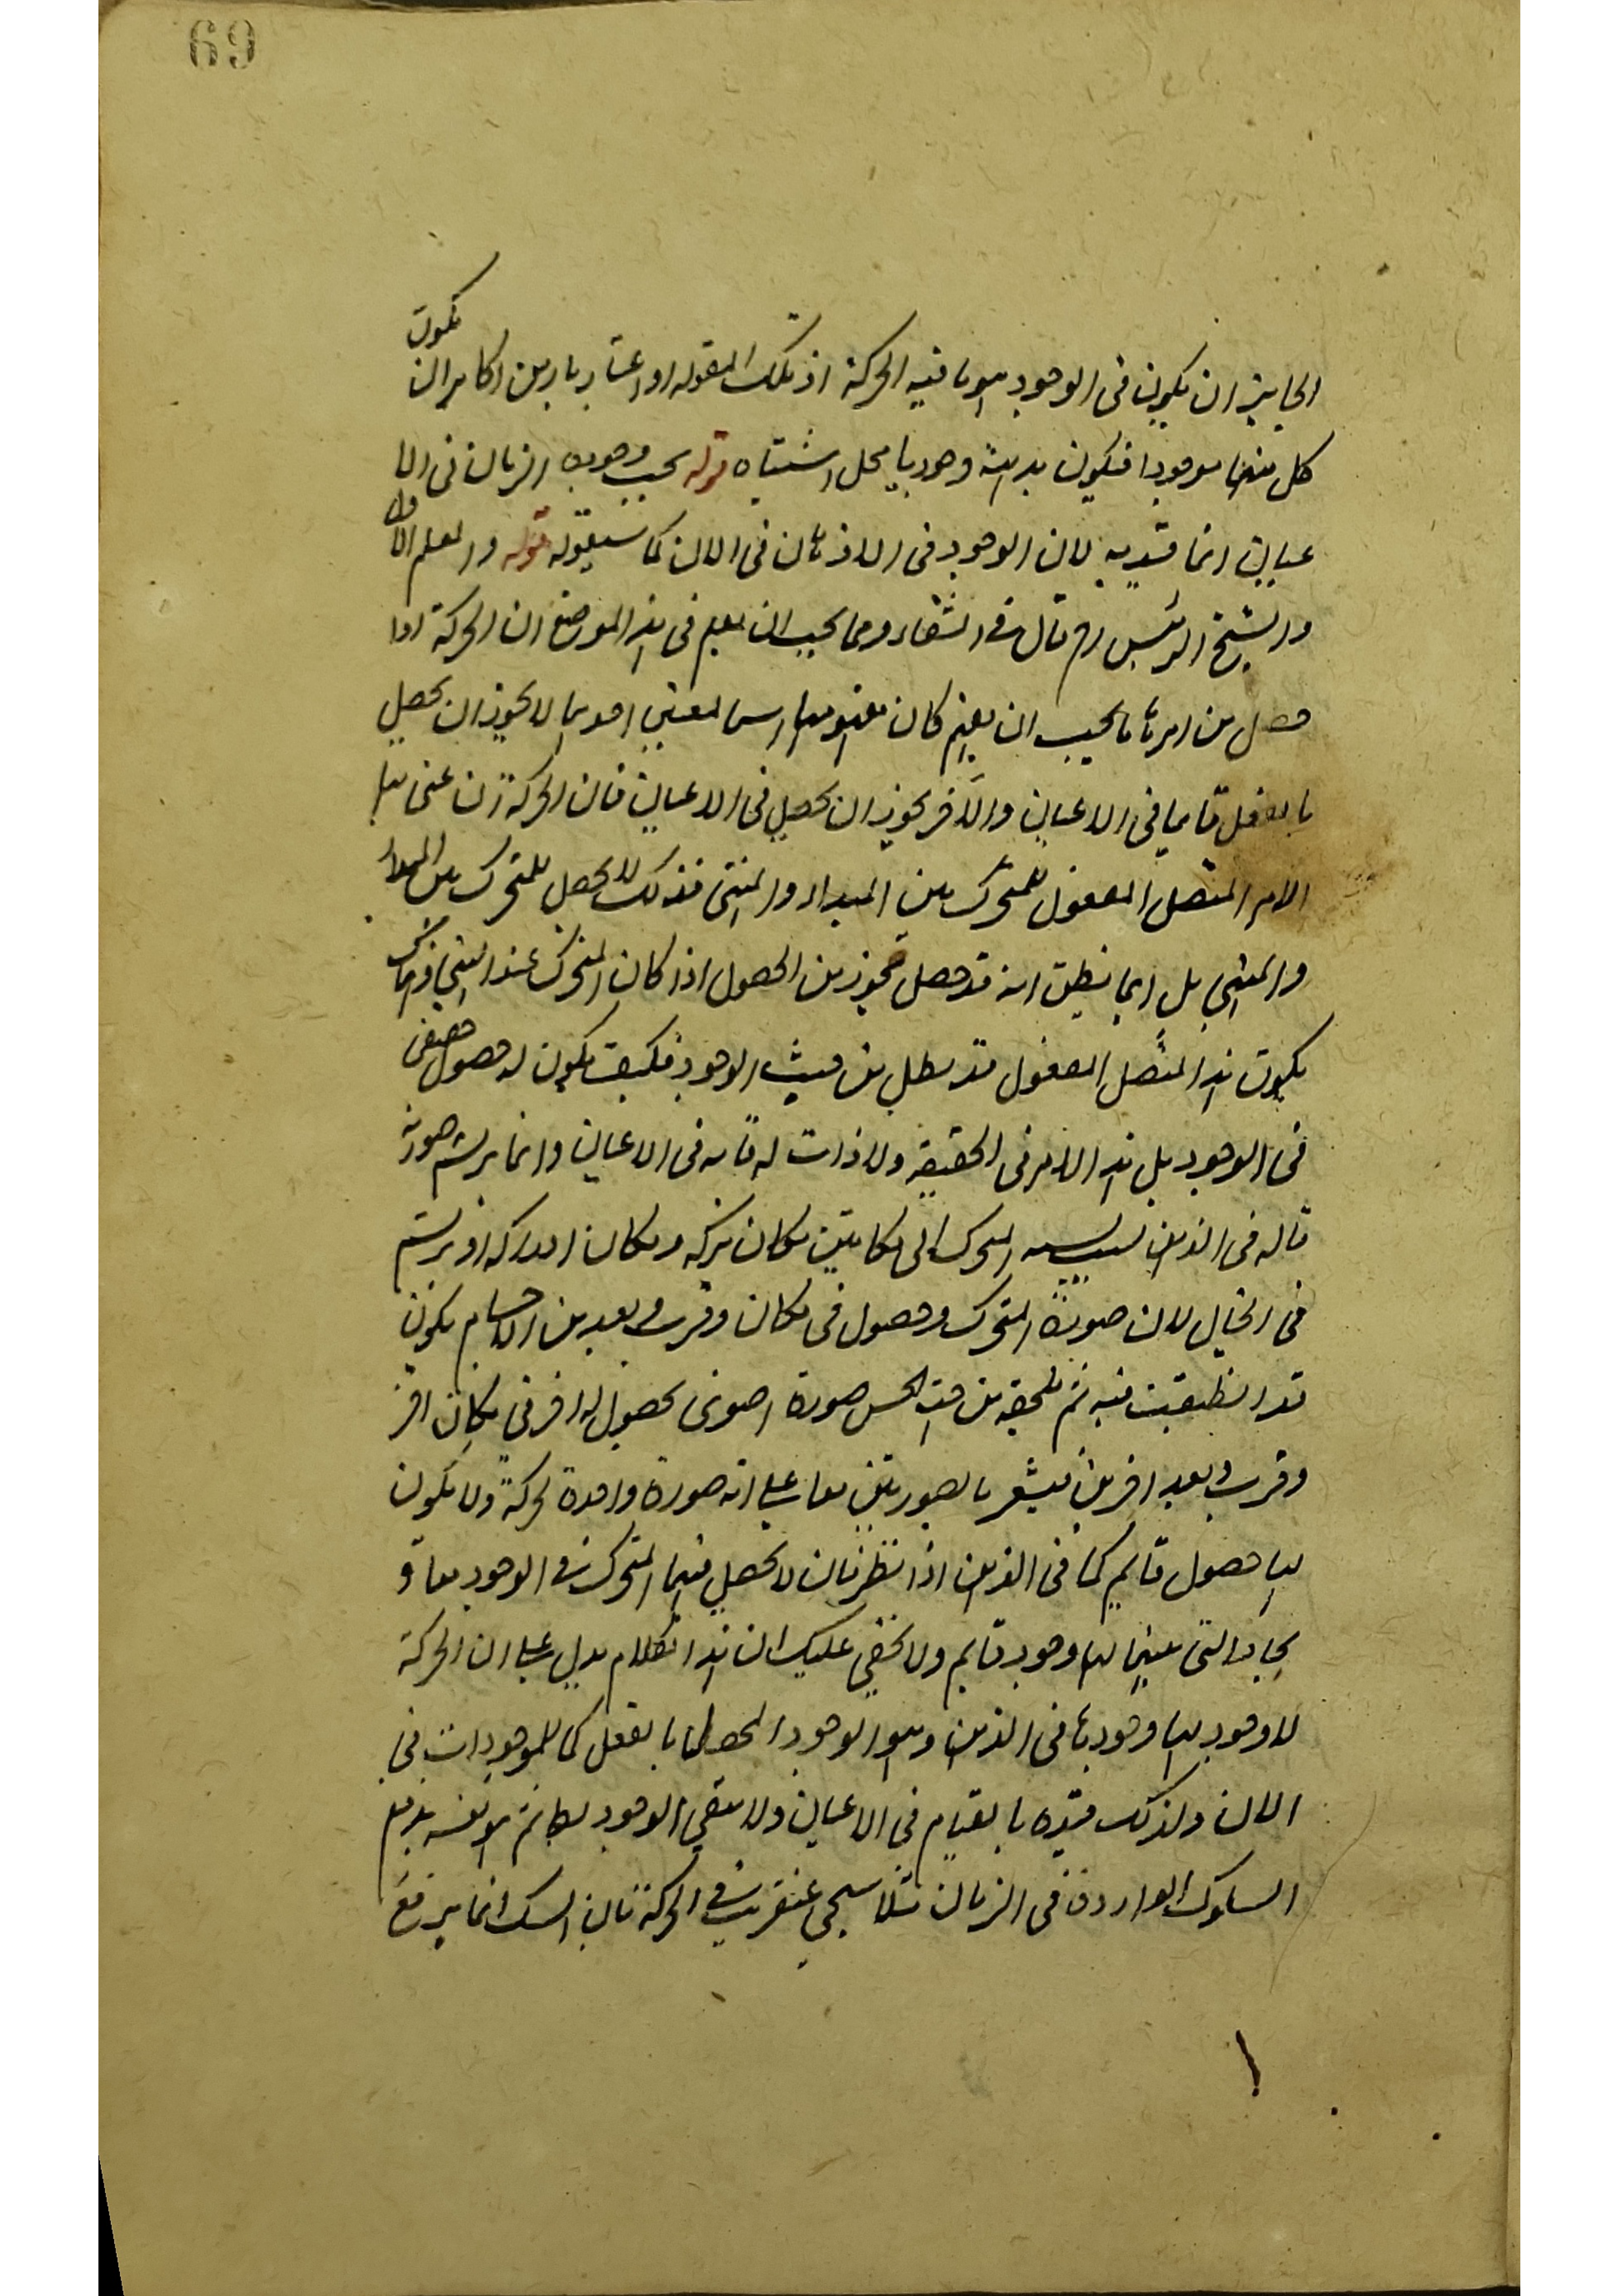 69
الجايز ان يكون فى الوجود هو ما فيه الحركة اذ تلك المقوله او اعتبار بارين اذ كامران يكون
كل منهما موجودا فيكون بداهة وجود ها محل اشتباه قوله بحسب وجود الزمان فى الا
عيان انما قيد به لان الوجود فى الاذهان فى الان كما سيقوله قوله والمعلم الاول
والشيخ الرئيس اه قال فى الشفاء ومما يجب ان يعلم فى هذا الموضع ان الحركة اذا
حصل من امرها ما يجب ان يفهم كان مفهومها اسما لمعنيين احدهما لا يجوز ان يحصل
بالفعل قايما فى الاعيان والآخر يجوز ان يحصل فى الاعيان فان الحركة ان عنى بها
الامر المتصل المعقول للمتحرك بين المبداء والمنتهى فذلك لا يحصل للمتحرك بين المبداء
والمنتهى بل انما يظن انه قد حصل نحوا من الحصول اذا كان المتحرك عند المنتهى وهناك
يكون هذا المتصل المعقول قد بطل من حيث الوجود فكيف يكون له حصول حقيقى
فى الوجود بل هذا الامر فى الحقيقه ولا ذات له قايمه فى الاعيان وانما يرتسم صورته
قاله فى الذهن بسبب نسبه المتحرك الى مكانين مكان تركه ومكان ادركه او يرتسم
فى الخيال لان صورة المتحرك وحصول فى مكان وقرب وبعد من الاجسام يكون
قد انطبقت فيه ثم تلحقه من جهة الحس صورة اخرى بحصول له اخر فى مكان اخر
وقرب وبعد اخرين فيشعر بالصورتين معا على انه صورة واحدة لحركة ولا يكون
لها حصول قايم كما فى الذهن اذ الطرفان لا يحصل فيهما المتحرك فى الوجود معا و
الحالة التى بينهما لها وجود قايم ولا يخفى عليك ان هذا الكلام يدل على ان الحركة
لا وجود لها وجودها فى الذهن وهو الوجود المحصل لها بالفعل كما للموجودات فى
الان ولذلك قيده بالقيام فى الاعيان ولا ينفى الوجود لها ثم هو نفسه يدفع
السلوك الواردة فى الزمان مثلا سيجى عنقريب فى الحركة فان الشك انما يرفع